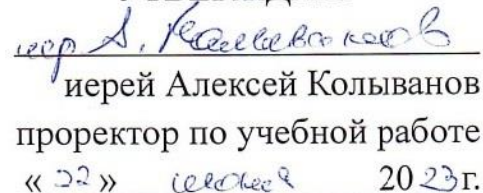 иер А. Колыванов
иерей Алексей Колыванов
проректор по учебной работе
« 22 » июня 2023 г.